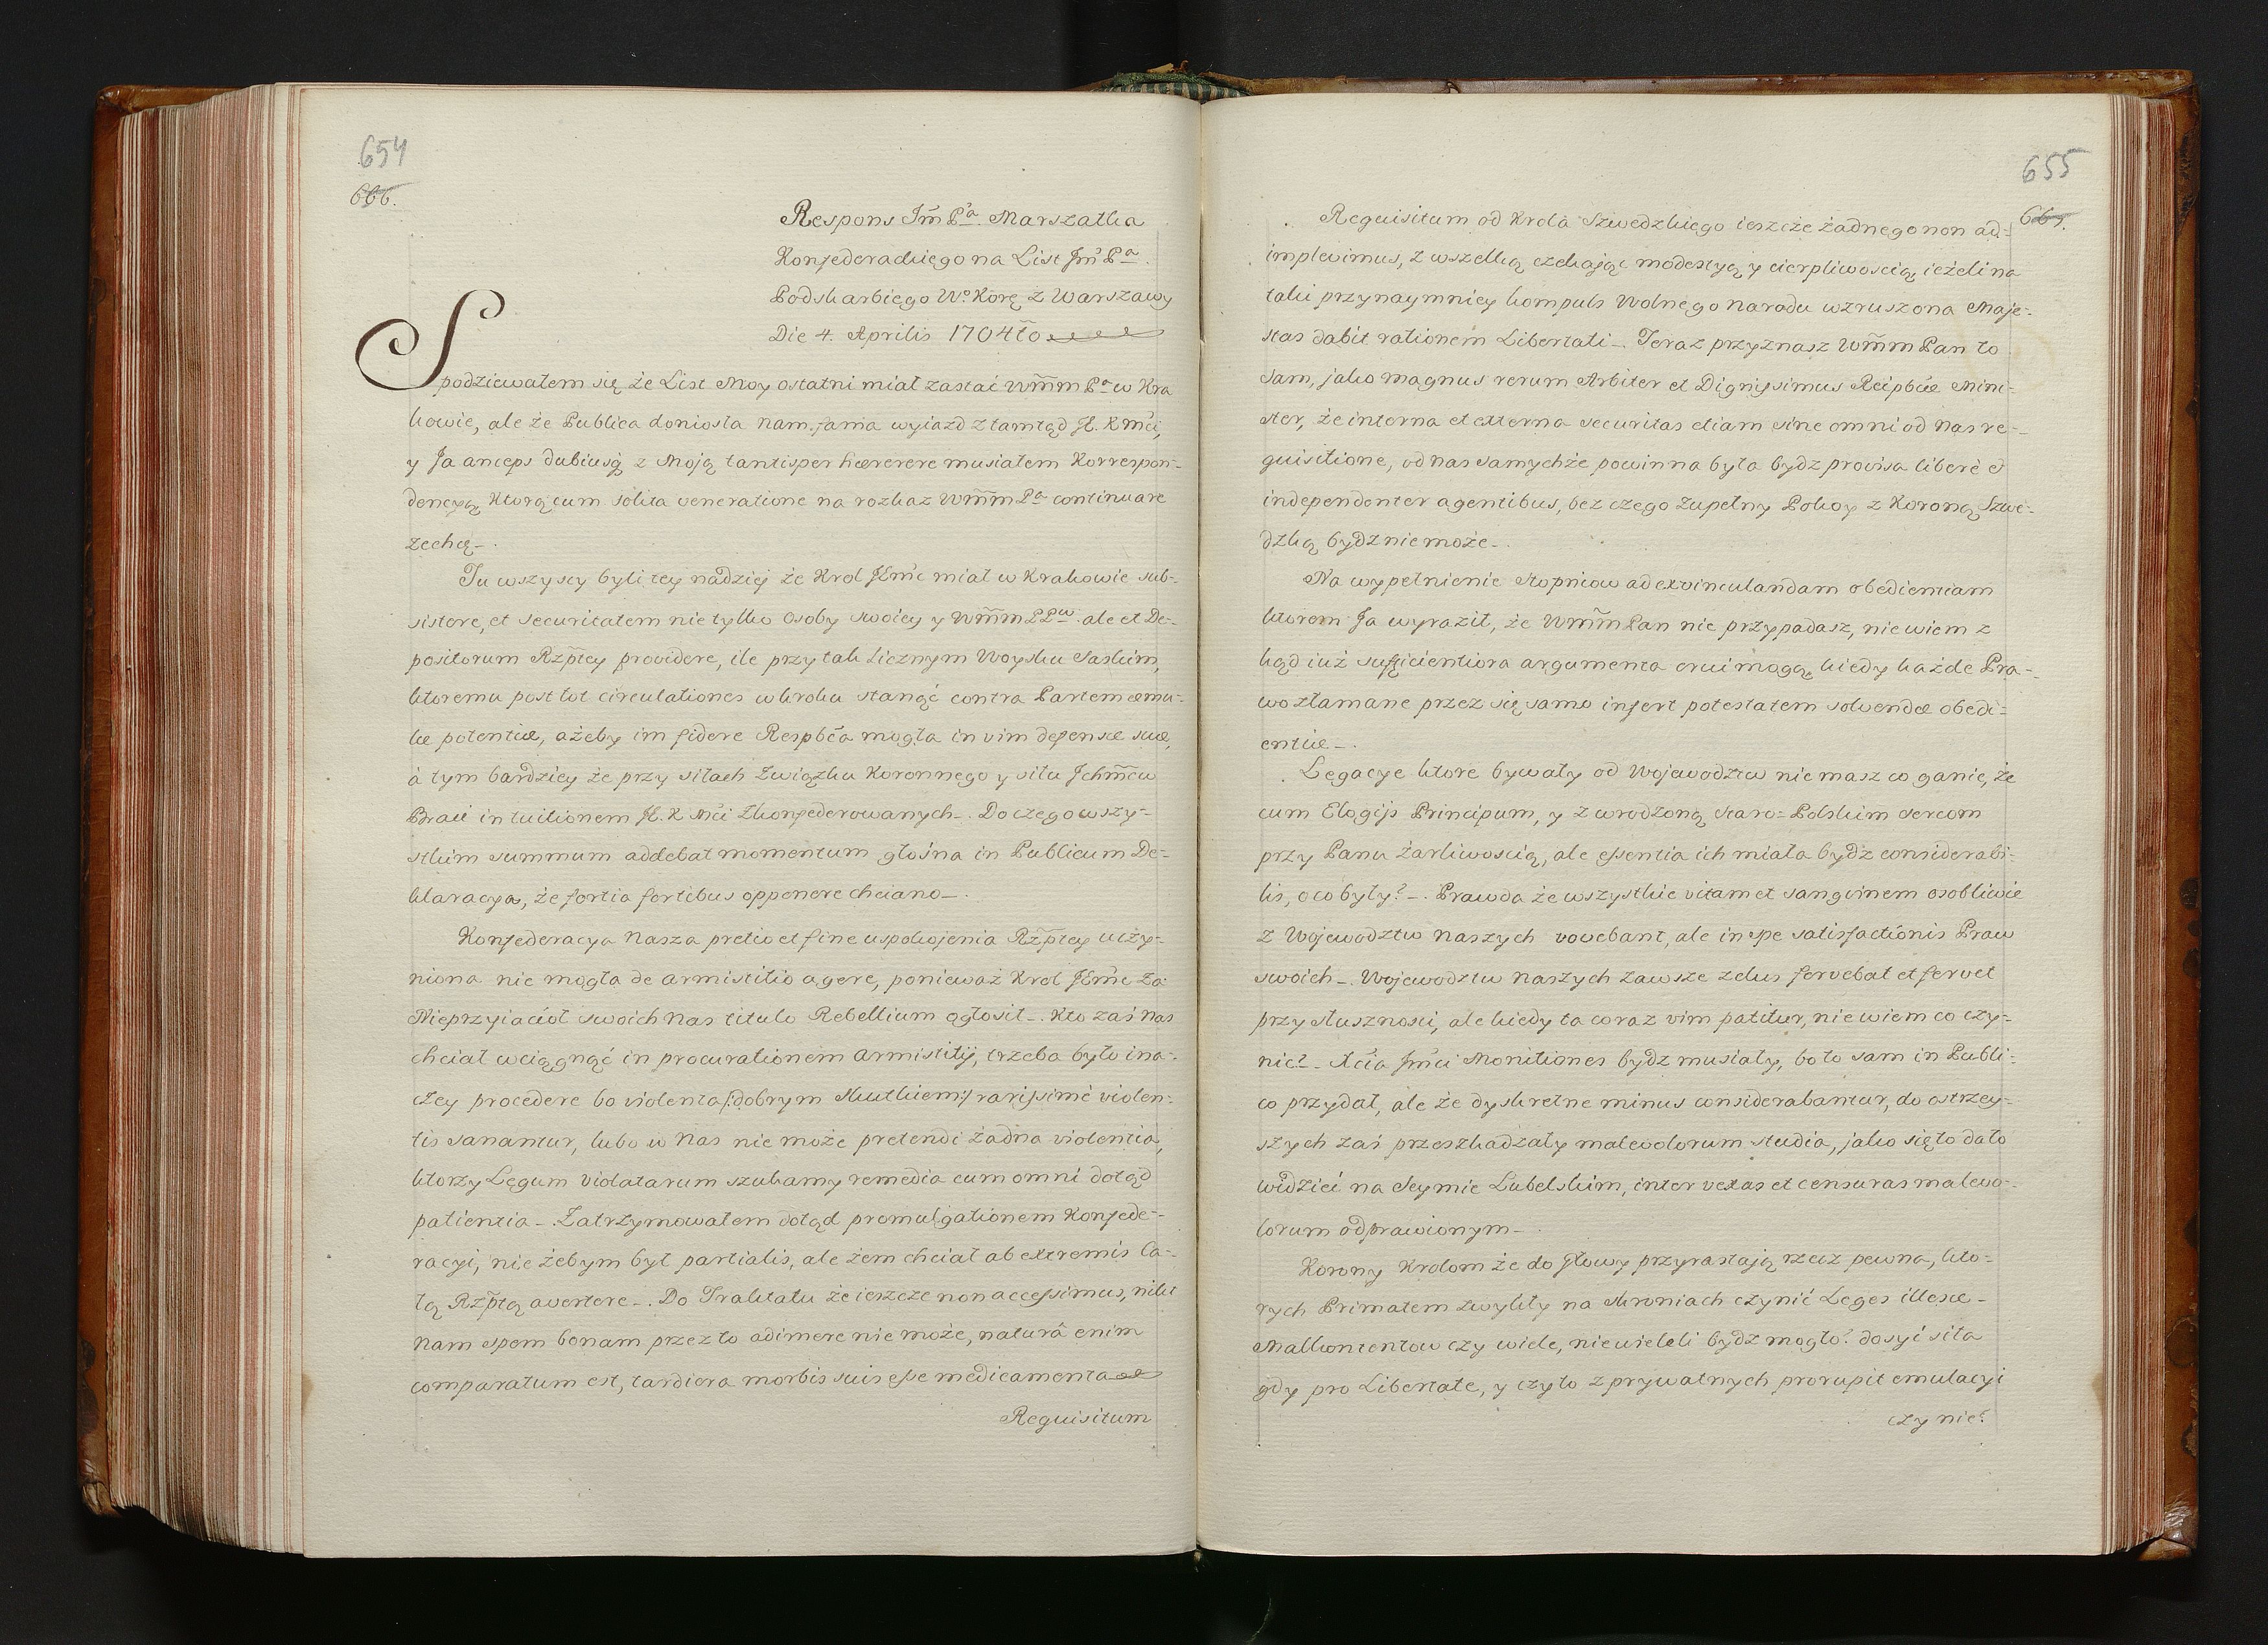 654
666.
Respons Jm̃ Pa. Marszałka
Konfederackiego na List Jm̃ Pa.
Podskarbiego Wo. Korę z Warszawy
Die 4. Aprilis 1704to
Spodziewałem się że List Moy ostatni miał zastać Wm̃m Pa w Kra
kowie, ale że Publica doniosła nam fama wyiazd ztamtąd J. K Mci,
y Ja anceps dubiusq; z Moją tantisper hœrerere musiałem Korrespon-
dencyą, Ktorą cum solita veneratione na rozkaz Wm̃m Pa continuare
zechcę_.
Tu wszyscy byli tey nadziej że Krol JEm̃c miał w Krakowie sub-
sistere, et securitatem nie tylko Osoby swoiey y Wm̃m PPw. ale et De-
positorum Rzp̃tey providere, ile przy tak licznym Woysku Saskim,
ktoremu post tot circulationes w kroku stanąć contra Partem œmu-
læ potentiæ, ażeby im fidere Respb̃ca mogła in vim defensæ suæ,
à tym bardziey że przy siłach Związku Koronnego y siłu Jchm̃ciw
Braci in tuitionem J. K Mci Zkonfederowanych_. Do czego wszy-
stkim summum addebat momentum głośna in Publicum De-
klaracya, że fortia fortibus opponere chciano_.
Konfederacya Nasza pretio et fine uspokojenia Rzp̃tey uczy-
niona nie mogła de armistitio agere, ponieważ Krol JEm̃c za
Nieprzyiacioł swoich Nas titulo Rebellium ogłosił_. Kto zaś Nas
chciał wciągnąć in procurationem armistitij, trzeba było ina-
czey procedere bo violenta /:dobrym skutkiem:/ rarissimè violen-
tis sanantur, lubo w Nas nie może pretendi żadna violentia,
ktorzy Legum violatarum szukamy remedia cum omni dotąd
patientia_. Zatrzymowałem dotąd promulgationem Konfede-
racyi, nie żebym był partialis, ale żem chciał ab extremis Ca-
łą Rzp̃tą avertere_. Do Traktatu że ieszcze non accessimus, nihil
Nam spem bonam przez to adimere nie może, naturâ enim
comparatum est, tardiora morbis suis esse medicamenta
Requisitum
655
667.
Requisitum od Krola Szwedzkiego ieszcze żadnego non ad-
implevimus, z wszelką czekając modestyą y cierpliwoscią, ieżeli na
taki przynaymniey kompuls Wolnego Narodu wzruszona Maje-
stas dabit rationem Libertati_. Teraz przyznasz Wm̃m Pan to
Sam, jako magnus rerum Arbiter et Dignissimus Reipb̃cæ Mini-
ster, że interna et externa securitas etiam sine omni od nas re-
quisitione, od nas samychże powinna była bydz provisa liberè et
independenter agentibus, bez czego zupełny Pokoy z Koroną Szwe-
dzką bydz nie może_.
Na wypełnienie stopniow ad exvinculandam obedientiam
ktorem Ja wyraził, że Wm̃m Pan nie przypadasz, nie wiem z
kąd iuż sufficientiora argumenta erui mogą, kiedy każde Pra-
wo złamane przez się samo infert potestatem solvendæ obedi-
entiæ_.
Legacye ktore bywały od Wojewodztw nie masz co ganić, że
cum Elogijs Principum, y z wrodzoną staro-Polskim sercom
przy Panu żarliwoscią, ale essentia ich miała bydz considerabi-
lis, o co były?_. Prawda że wszystkie vitam et sangvinem osobliwie
z Wojewodztw Naszych vovebant, ale in spe satisfactionis Praw
swoich_. Wojewodztw Naszych zawsze zelus fervebat et fervet
przy słusznosci, ale kiedy ta coraz vim patitur, nie wiem co czy-
nić?_. Xcia Jm̃ci Monitiones bydz musiały, bo to sam in Publi-
co przydał, ale że dyskretne minus considerabantur, do ostrzey-
szych zaś przeszkadzały malevolorum studia, jako się to dało
widzieć na Seymie Lubelskim, inter vexas et censuras malevo-
lorum odprawionym_.
Korony Krolom że do głowy przyrastają rzecz pewna, kto-
rych Primatem zwykły na skroniach czynić Leges illesæ_.
Malkontentow czy wiele, niewieleli bydz mogło? dosyć siła
gdy pro Libertate, y czyto z prywatnych prorupit emulacyi
czy nie?